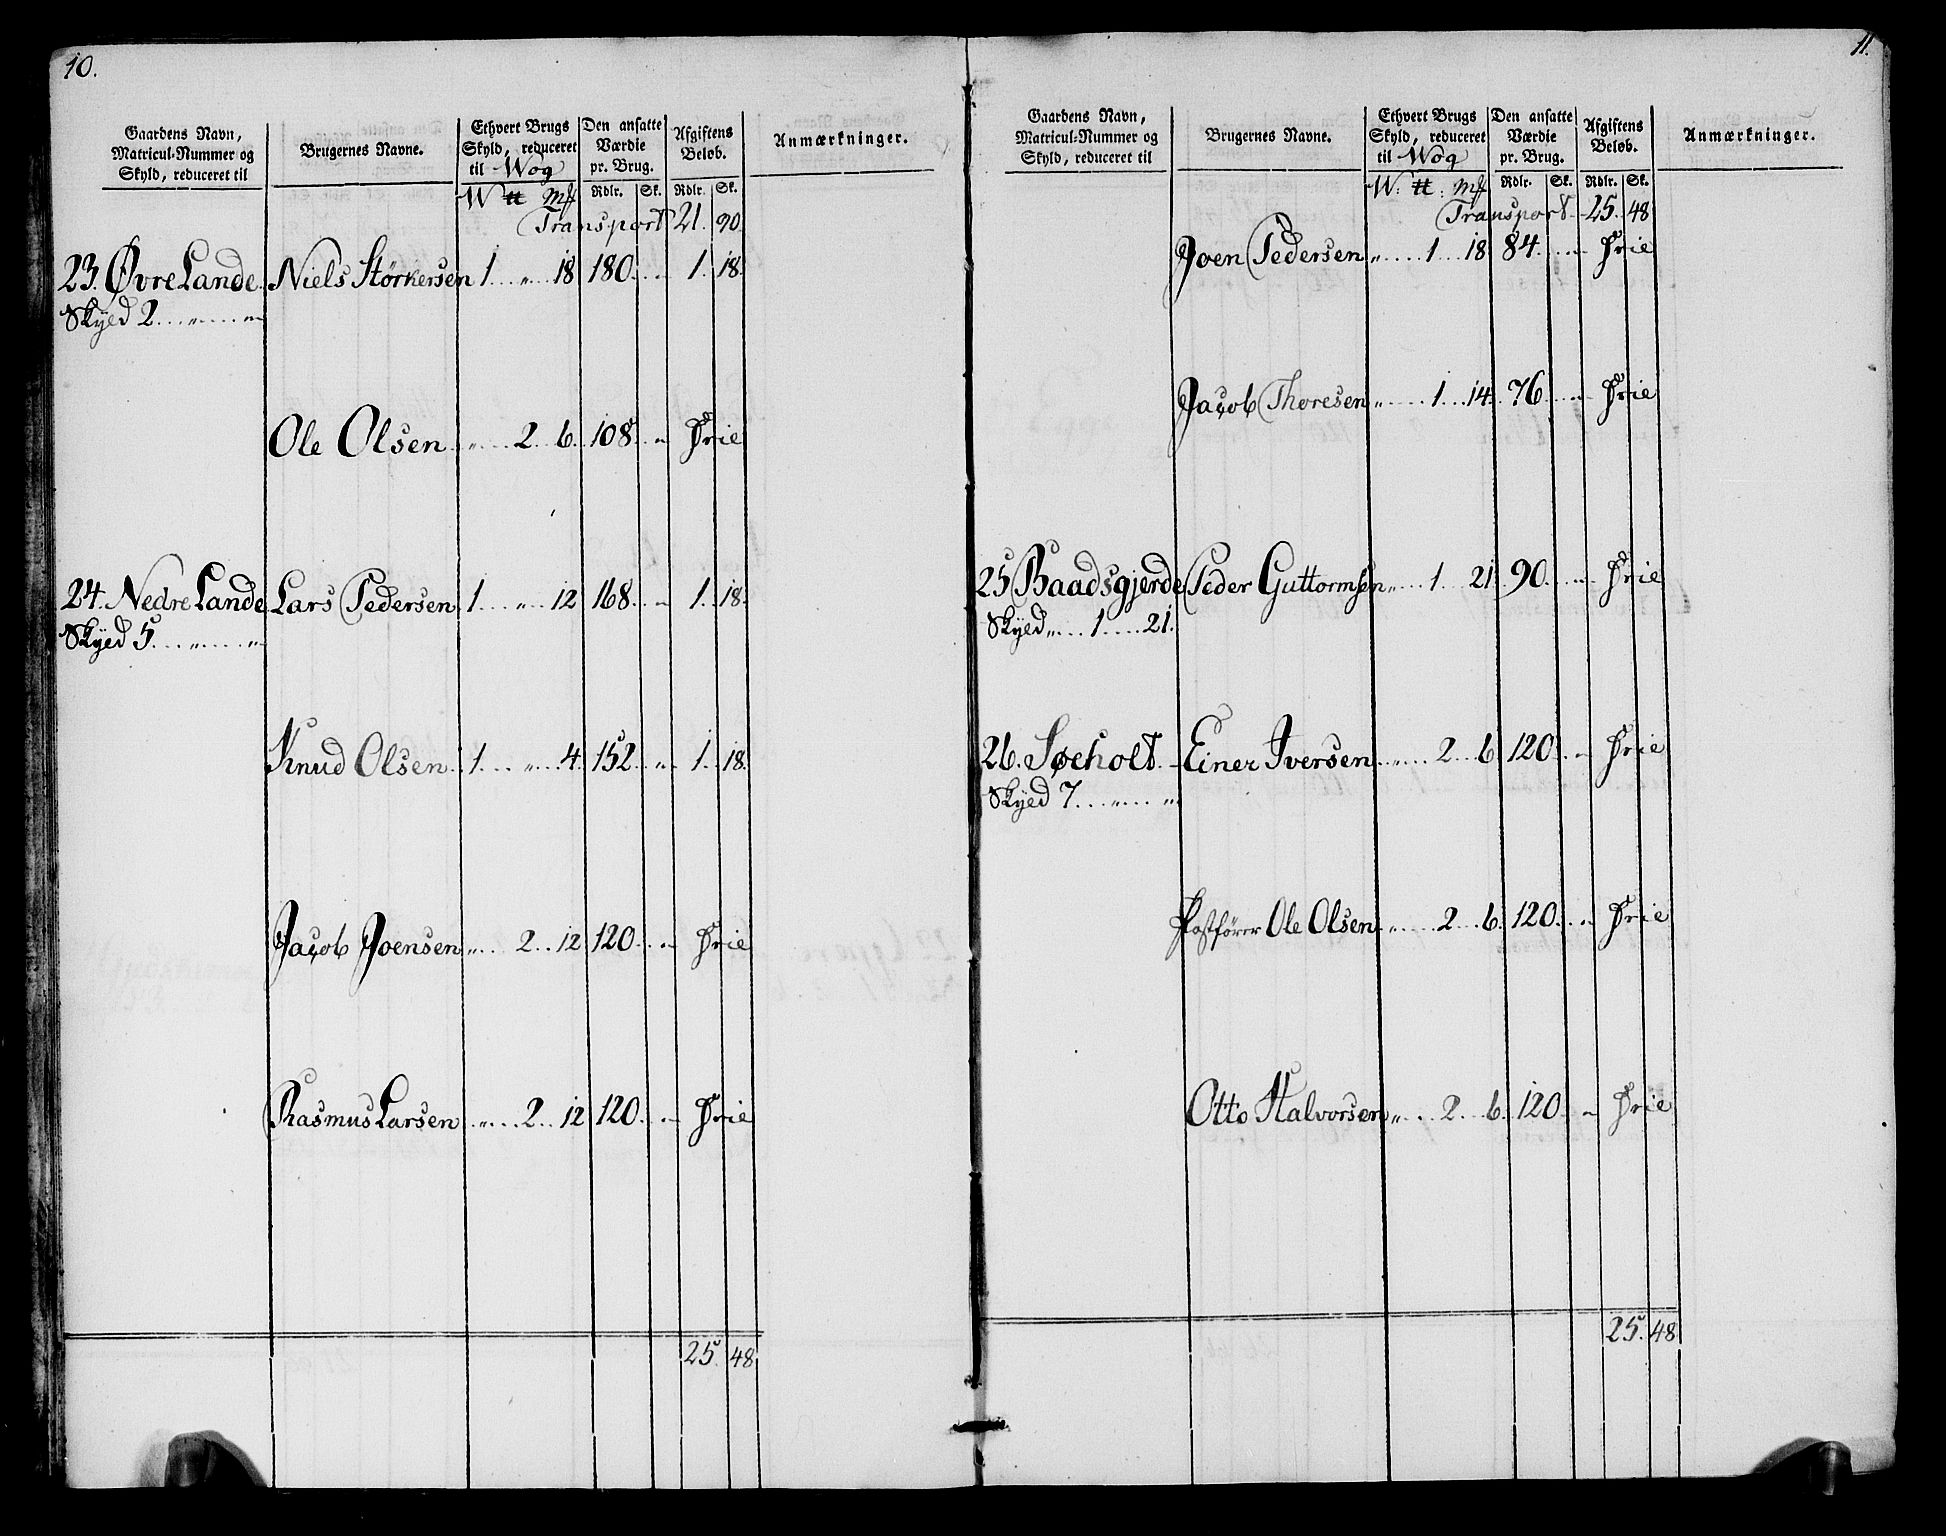 10.
Gaardens Navn, Matricul-Nummer og Skyld, reduceret til | Brugernes Navne. | Ethvert Brugs Skyld, reduceret til Wog | Den ansatte Værdie pr. Brug. | Afgiftens Beløb. | Anmærkninger.
W ℔ Mk Rdlr. Sk. Rdlr. Sk.
Transport 21. 90.
23. Øvre Lande. Niels Størkersen 1 „ 18 180. „ 1. 18.
Skyed 2 „ „
Ole Olsen „ 2. 6. 108. „ Frie
24. Nedre Lande Lars Pedersen 1. „ 12 168. „ 1. 18.
Skyed 5. „ „
Knud Olsen 1. „ 4. 152. „ 1. 18.
Jacob Joensen „ 2. 12 120. „ Frie
Rasmus Larsen „ 2. 12 120. „ Frie
25. 48
11.
Gaardens Navn, Matricul-Nummer og Skyld, reduceret til | Brugernes Navne. | Ethvert Brugs Skyld, reduceret til Wog | Den ansatte Værdie pr. Brug. | Afgiftens Beløb. | Anmærkninger.
W. ℔. Mk Rdlr. Sk. Rdlr. Sk.
Transport 25. 48
Joen Pedersen „ 1 18 84. „ Frie
Jacob Thoresen „ 1. 14. 76. „ Frie
25 Baadsgjerde Peder Guttormsen „ 1 21. 90. „ Frie
Skyed „ 1 21.
26. Søeholt Einer Iversen „ 2. 6. 120. „ Frie
Skyed 7. „ „
Postfører Ole Olsen „ 2. 6. 120. „ Frie
Otto Halvorsen „ 2. 6. 120. „ Frie
25. 48